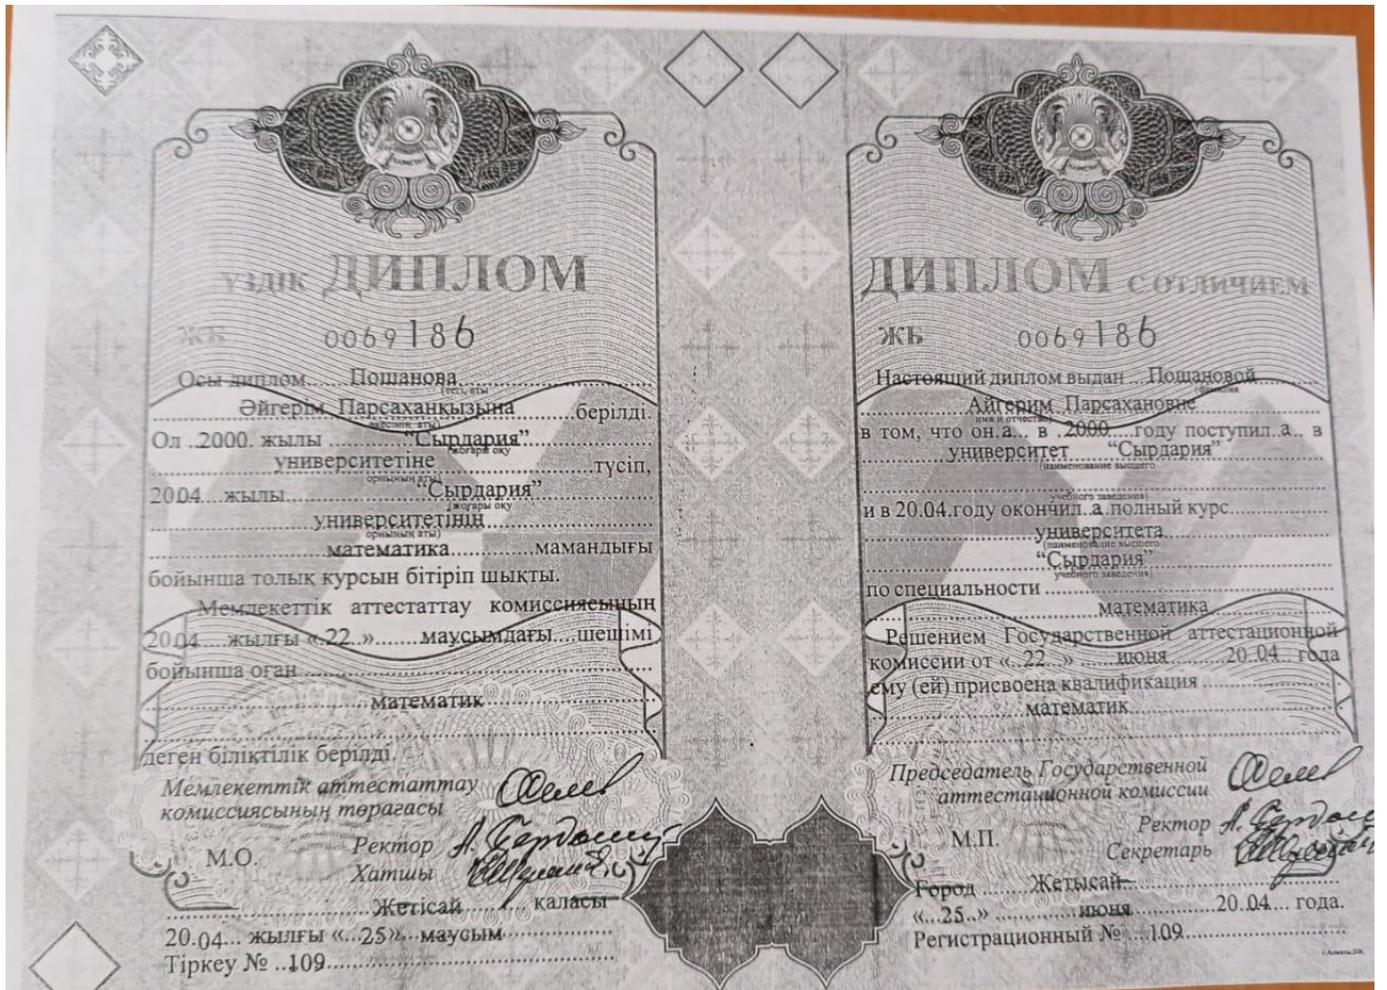 ҮЗДІК ДИПЛОМ
ЖБ 0069186
Осы диплом Пошанова
(тегі, аты)
Әйгерім Парсаханқызына берілді.
әкесінің аты)
Ол 2000 жылы "Сырдария"
(жоғары оқу
университетіне түсіп,
орнының аты)
2004 жылы "Сырдария"
(жоғары оқу
университетінің
орнының аты)
математика мамандығы
бойынша толық курсын бітіріп шықты.
Мемлекеттік аттестаттау комиссиясының
2004 жылғы «22» маусымдағы шешімі
бойынша оған
математик
деген біліктілік берілді.
Мемлекеттік аттестаттау
комиссиясының төрағасы
М.О.
Ректор
Хатшы
Жетісай қаласы
2004 жылғы «25» маусым
Тіркеу № 109
ДИПЛОМ С ОТЛИЧИЕМ
ЖБ 0069186
Настоящий диплом выдан Пощановой
Айгерим Парсахановне
имя и отчество)
в том, что он а в 2000 году поступил а в
университет "Сырдария"
(наименование высшего
учебного заведения)
и в 2004 году окончил а полный курс
университета
(наименование высшего
"Сырдария"
учебного заведения)
по специальности
математика
Решением Государственной аттестационной
комиссии от «22» июня 2004 года
ему (ей) присвоена квалификация
математик
Председатель Государственной
аттестационной комиссии
М.П.
Ректор
Секретарь
Город Жетысай
«25» июня 2004 года.
Регистрационный № 109